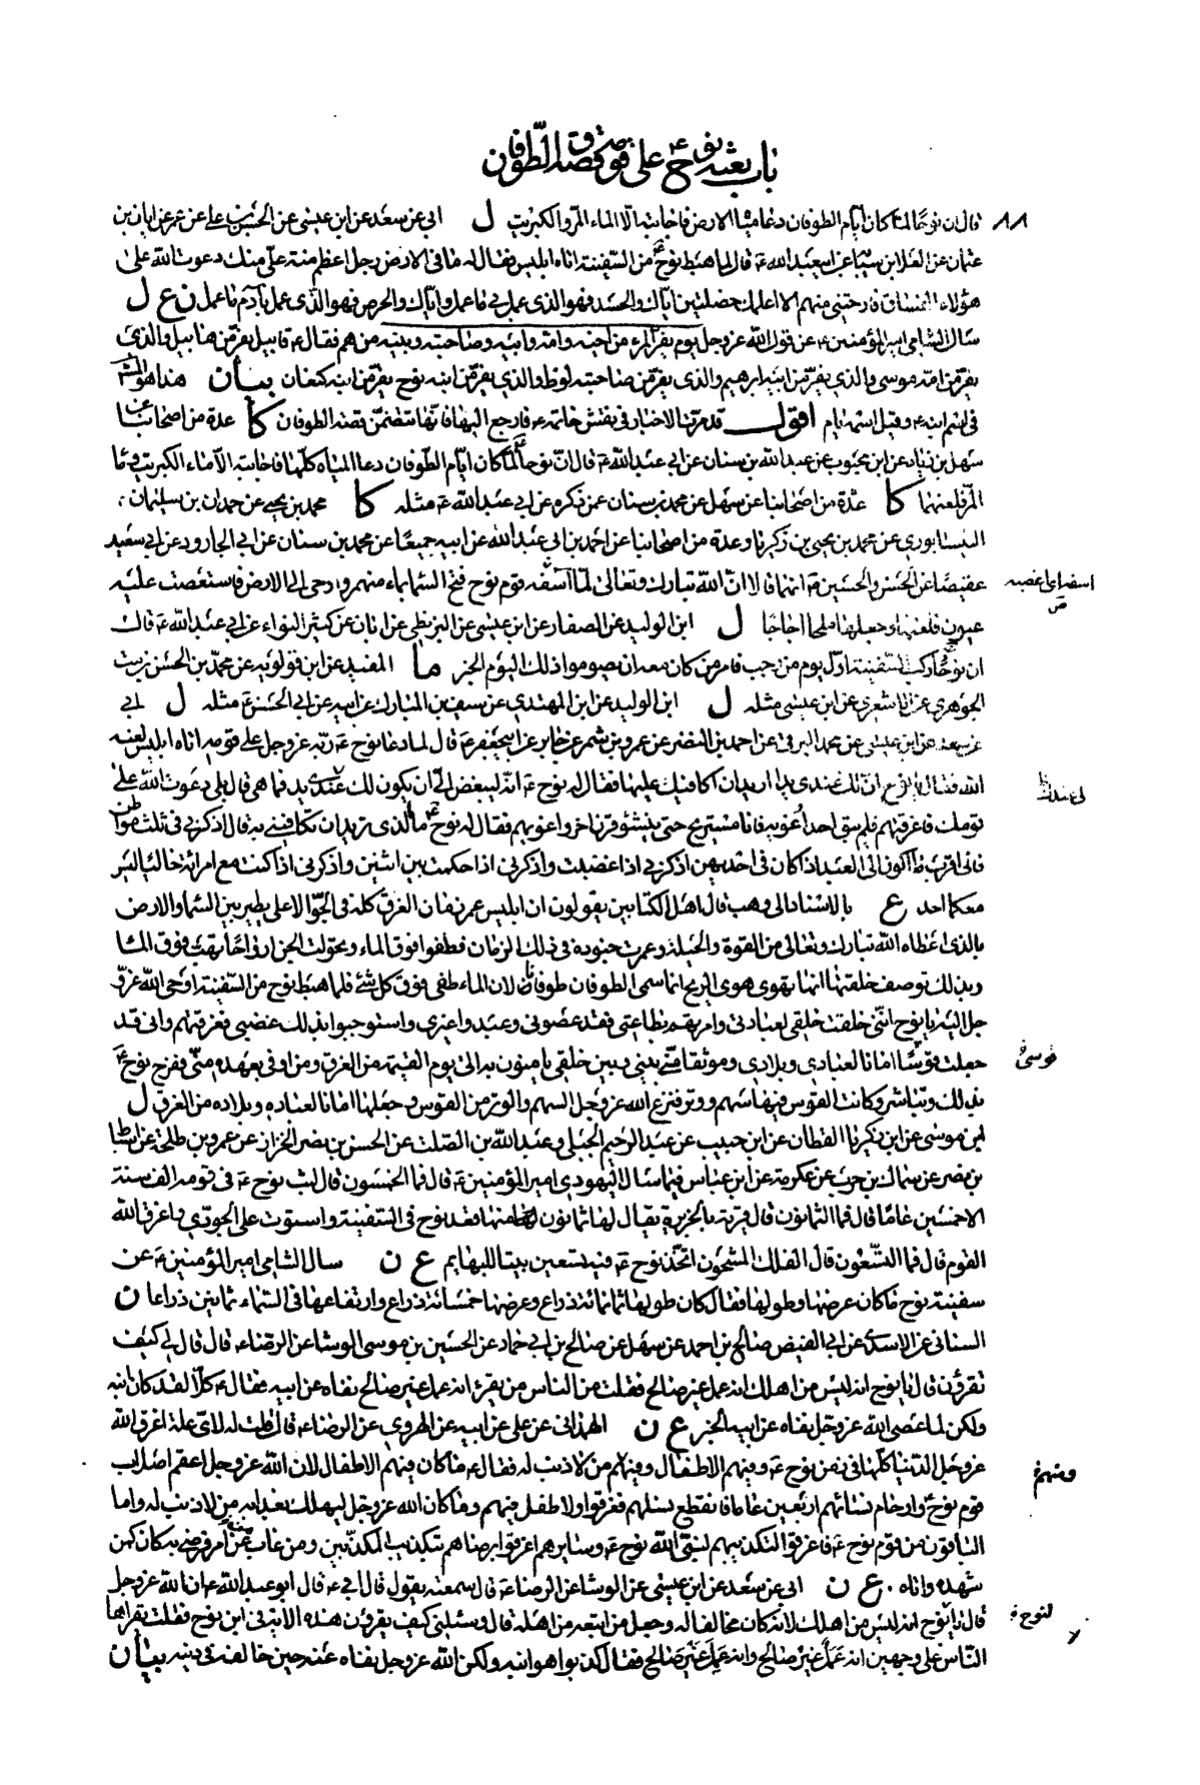 باب بعثة نوح ع على قومه وقصة الطوفان
قال ان نوحا لما كان ايام الطوفان دعا مياه الارض فاجابته الا الماء المر والكبريت ل ابي عن سعد عن ابن عيسى عن الحسن بن علي عن عمر عن ابان بن
عثمان عن العلا بن سيابة عن ابي عبد الله ع قال لما هبط نوح ع من السفينة اتاه ابليس فقال له ما في الارض رجل اعظم منة علي منك دعوت الله على
هؤلاء الفساق فارحتني منهم الا اعلمك خصلتين اياك والحسد فهو الذي عمل بي ما عمل واياك والحرص فهو الذي عمل بآدم ما عمل ن ع ل
سال الشامي امير المؤمنين ع عن قول الله عز وجل يوم يفر المرء من اخيه وامه وابيه وصاحبته وبنيه من هم فقال ع قابيل يفر من هابيل والذي
يفر من امه موسى والذي يفر من ابيه ابرهيم والذي يفر من صاحبته لوط والذي يفر من ابنه نوح يفر من ابنه كنعان بيان هذا هو المشهور
في اسم ابنه ع وقيل اسمه يام اقول قد مر في الاخبار في نقش خاتمه ع فارجع اليها فانها تتضمن قصة الطوفان كا عدة من اصحابنا عن
سهل بن زياد عن ابن محبوب عن عبد الله بن سنان عن ابي عبد الله ع قال ان نوحا ع لما كان ايام الطوفان دعا المياه كلها فاجابته الا ماء الكبريت وما
المر فلعنهما كا عدة من اصحابنا عن سهل عن محمد بن سنان عمن ذكره عن ابي عبد الله ع مثله كا محمد بن يحيى عن حمدان بن سليمان
النيسابوري عن محمد بن يحيى بن زكريا وعدة من اصحابنا عن احمد بن ابي عبد الله عن ابيه جميعا عن محمد بن سنان عن ابي الجارود عن ابي سعيد
عقيصا عن الحسن والحسين ع انهما قالا ان الله تبارك وتعالى لما اسفه قوم نوح فتح السما بماء منهمر واوحى الى الارض فاستعصت عليه
اسفه اي اغضبه
ص
عيون فلعنها وجعلها ملحا اجاجا ل ابن الوليد عن الصفار عن ابن عيسى عن البزنطي عن ابان عن كثير النواء عن ابي عبد الله ع قال
ان نوحا ركب السفينة اول يوم من رجب فامر من كان معه ان يصوموا ذلك اليوم الخبر ما المفيد عن ابن قولويه عن محمد بن الحسن بن مت
الجوهري عن الاشعري عن ابن عيسى مثله ل ابن الوليد عن ابن المهتدي عن سيف بن المبارك عن ابيه عن ابي الحسن ع مثله ل ابي
عن سعد عن ابن عيسى عن محمد البرقي عن احمد بن النضر عن عمرو بن شمر عن جابر عن ابي جعفر ع قال لما دعا نوح ع ربه عز وجل على قومه اتاه ابليس لعنه
الله فقال يا نوح ان لك عندي يدا اريد ان اكافيك عليها فقال له نوح ع انه ليبغض الي ان يكون لك عندي يد فما هي قال بلى دعوت الله على
قومك فاغرقتهم فلم يبق احد اغويه فانا مستريح حتى ينشؤ قرن اخر واغويهم فقال له نوح ع ما الذي تريد ان تكافيني به قال اذكرني في ثلث مواطن
فاني اقرب ما اكون الى العبد اذا كان في احديهن اذكرني اذا غضبت واذكرني اذا حكمت بين اثنين واذكرني اذا كنت مع امراة خاليا ليس
معكما احد ع بالاسناد الى وهب قال اهل الكتابين يقولون ان ابليس عمر زمان الغرق كله في الجو الاعلى يطير بين السماء والارض
بالذي اعطاه الله تبارك وتعالى من القوة والحيلة وعمرت جنوده في ذلك الزمان فطفوا فوق الماء وتحولت الجن ارواحا تهب فوق الماء
وبذلك توصف خلقتها انها تهوي هوي الريح انما سمي الطوفان طوفانا لان الماء طفى فوق كل شئ فلما هبط نوح من السفينة اوحى الله عز و
جل اليه يا نوح انني خلقت خلقي لعبادتي وامرتهم بطاعتي فقد عصوني وعبدوا غيري واستوجبوا بذلك غضبي فغرقتهم واني قد
جعلت قوسا امانا لعبادي وبلادي وموثقا مني بيني وبين خلقي يامنون به الى يوم القيمة من الغرق ومن اوفى بعهده مني ففرح نوح ع
قوسي خ
بذلك وتباشر وكانت القوس فيها سهم ووتر فنزع الله عز وجل السهم والوتر من القوس وجعلها امانا لعباده وبلاده من الغرق ل
ابن موسى عن ابن زكريا القطان عن ابن حبيب عن عبد الرحيم الجبلي وعبد الله بن الصلت عن الحسن بن نصر الخزاز عن عمرو بن طلحة عن اسباط
بن نصر عن سماك بن حرب عن عكرمة عن ابن عباس فيما سال اليهودي امير المؤمنين ع قال فما الخمسون قال لبث نوح ع في قومه الف سنة
الا خمسين عاما قال فما الثمانون قال قرية بالجزيرة يقال لها ثمانون منها قعد نوح في السفينة واستوت على الجودي واغرق الله
القوم قال فما التسعون قال الفلك المشحون اتخذ نوح ع فيه تسعين بيتا للبهايم ع ن سال الشامي امير المؤمنين ع عن
سفينة نوح ما كان عرضها وطولها فقال كان طولها ثمانمائة ذراع وعرضها خمسمائة ذراع وارتفاعها في السماء ثمانين ذراعا ن
السناني عن الاسدي عن ابي الفيض صالح بن احمد عن سهل عن صالح بن ابي حماد عن الحسين بن موسى الوشا عن الرضا ع قال قال لي كيف
تقرؤن قال يا نوح انه ليس من اهلك انه عمل غير صالح فقلت من الناس من يقرء انه عمل غير صالح نفاه عن ابيه فقال ع كلا لقد كان ابنه
ولكن لما عصى الله عز وجل نفاه عن ابيه الخبر ع ن الهمداني عن علي عن ابيه عن الهروي عن الرضا ع قال قلت له لاي علة اغرق الله
عز وجل الدنيا كلها في زمن نوح ع وفيهم الاطفال وفيهم من لا ذنب له فقال ع ما كان فيهم الاطفال لان الله عز وجل اعقم اصلاب
ومنهم خ
قوم نوح وارحام نسائهم اربعين عاما فانقطع نسلهم فغرقوا ولا طفل فيهم وما كان الله عز وجل ليهلك بعذابه من لا ذنب له واما
الباقون من قوم نوح ع فاغرقوا لتكذيبهم لنبي الله نوح ع وسايرهم اغرقوا برضاهم تكذيب المكذبين ومن غاب عن امر فرضي به كان كمن
شهده واتاه ع ن ابي عن سعد عن ابن عيسى عن الوشا عن الرضا ع قال سمعته يقول قال ابي ع قال ابو عبد الله ع ان الله عز وجل
قال يا نوح انه ليس من اهلك لانه كان مخالفا له وجعل من اتبعه من اهله قال وسئلني كيف يقرؤن هذه الاية في ابن نوح فقلت يقراها
لنوح خ
الناس على وجهين انه عمل غير صالح وانه عمل غير صالح فقال كذبوا هو ابنه ولكن الله عز وجل نفاه عنه حين خالفه في دينه بيان